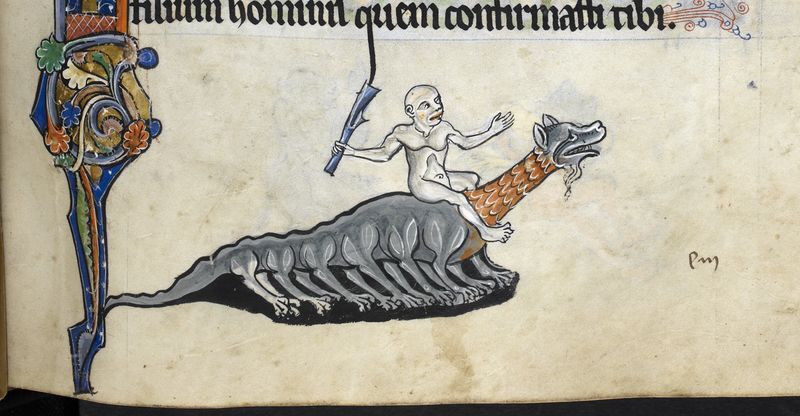 filium hominis quem confirmasti tibi.
pm